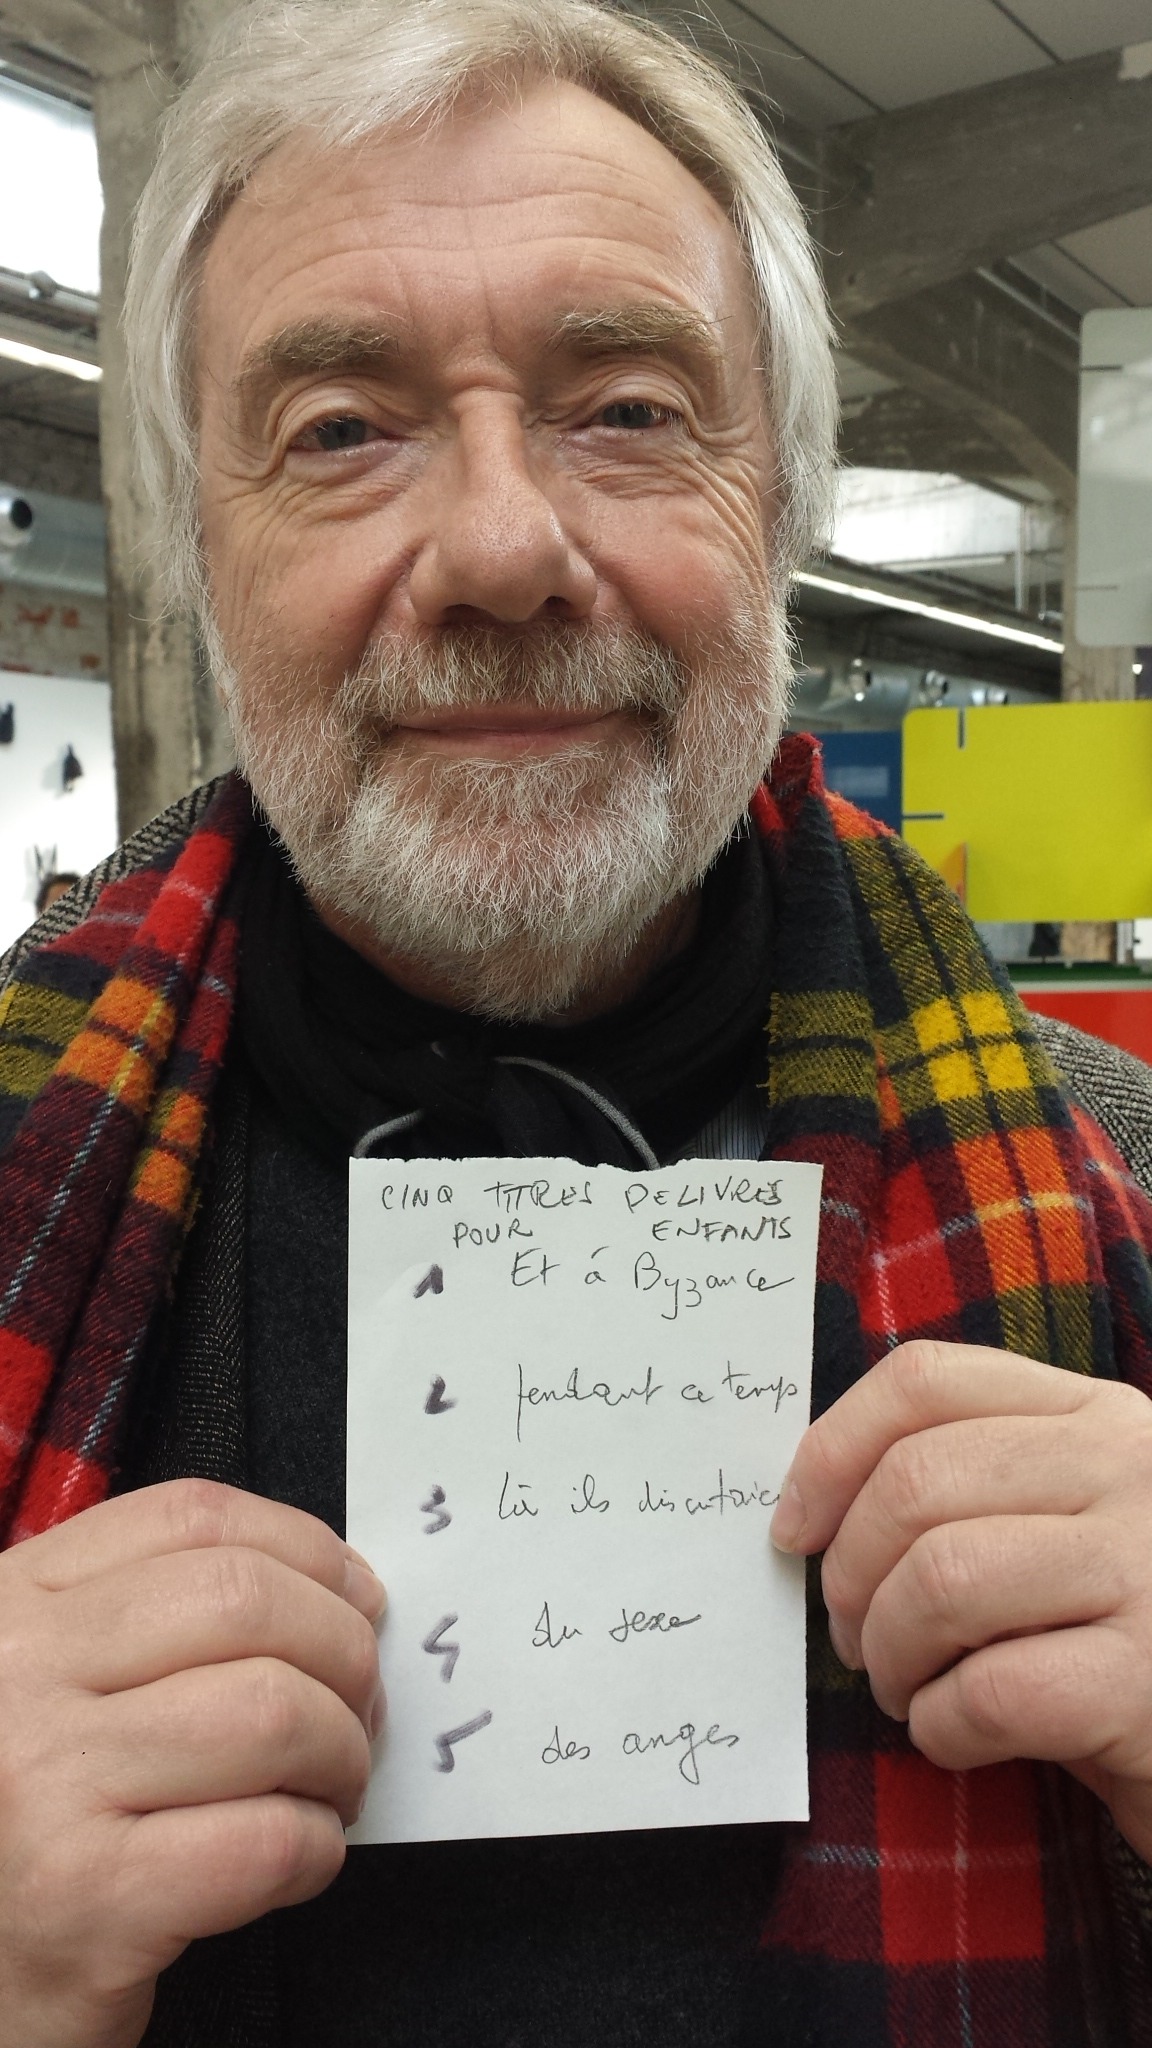 CINQ TITRES DE LIVRES
POUR ENFANTS
1 Et à Byzance
2 pendant ce temps
3 là ils discutaie
4 du sexe
5 des anges